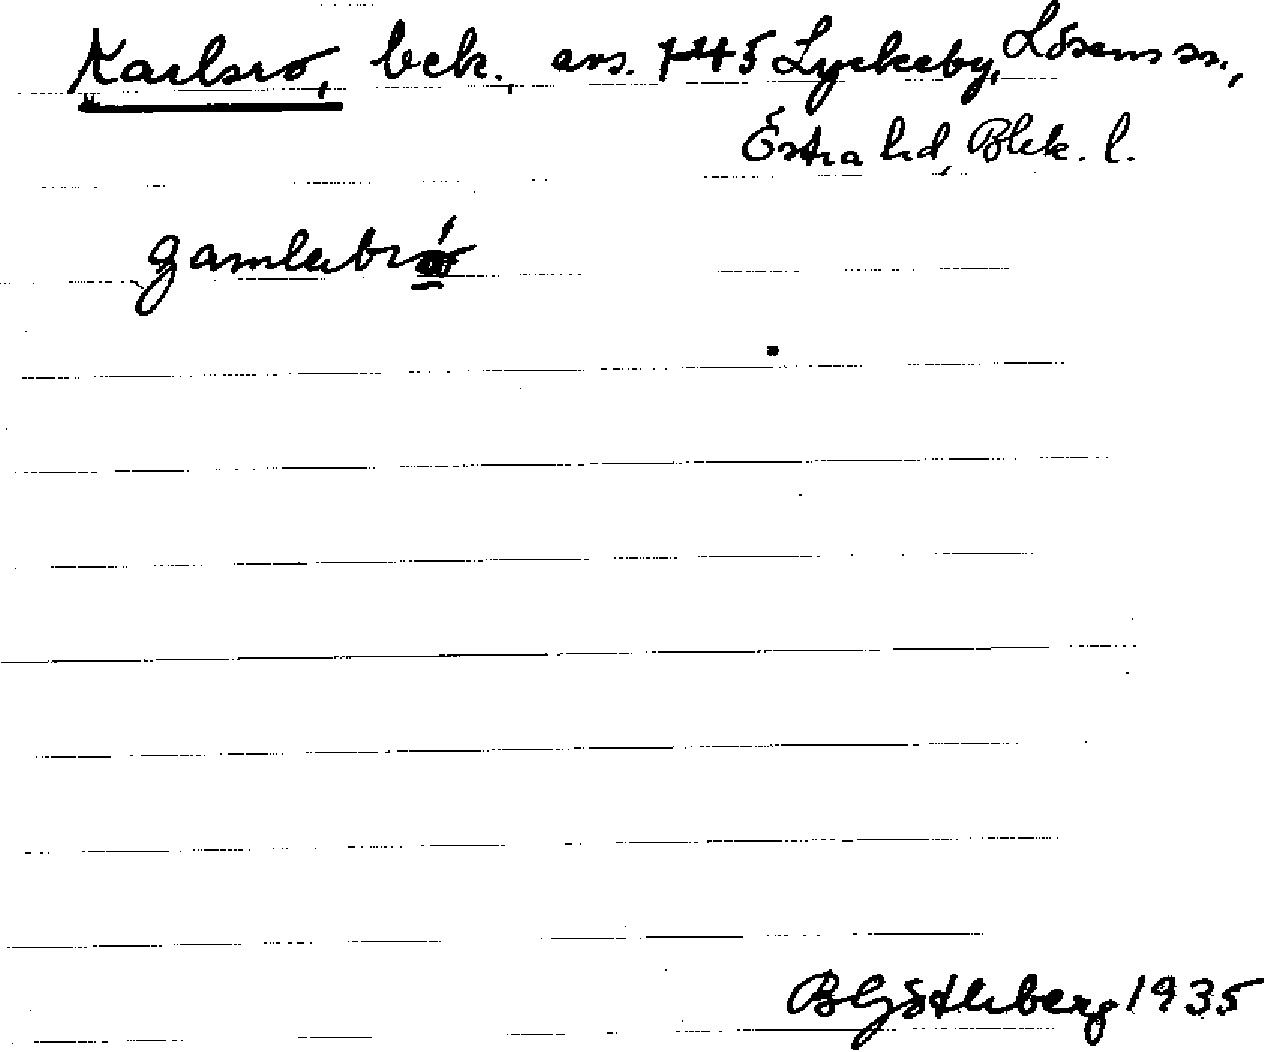 Karlsro, bek. avs. 1445 Lyckeby, Lösens sn.,
Östra hd, Blek. l.
gamlabro
B Göthberg 1935